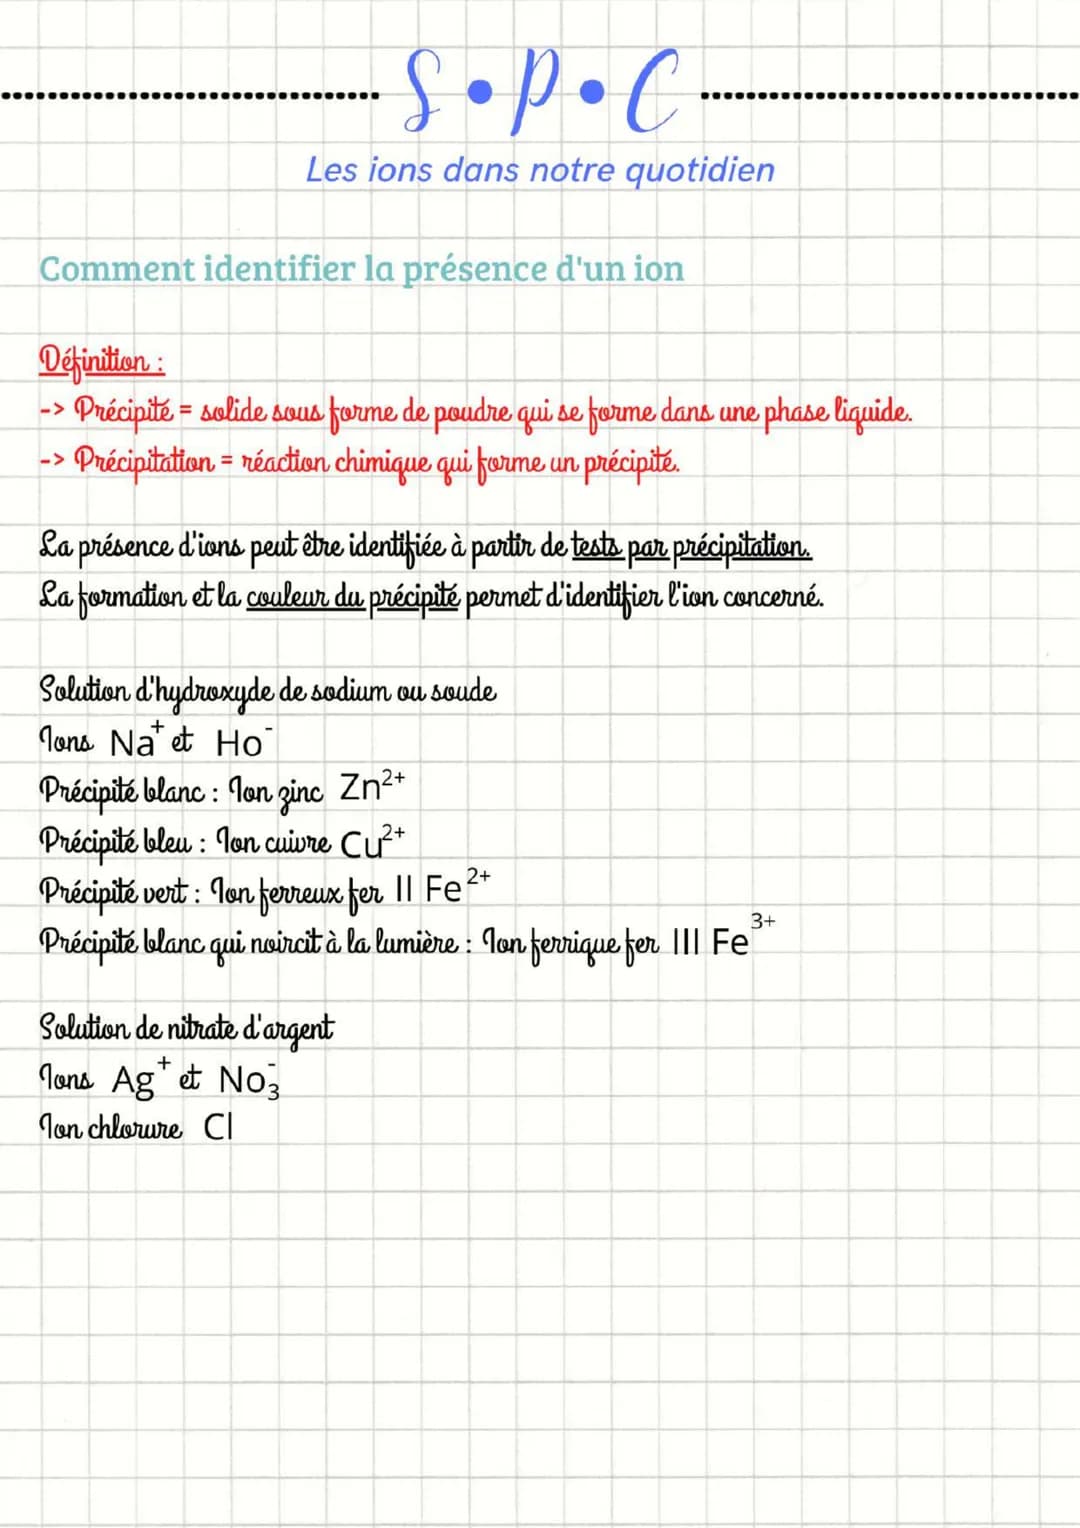 S•P•C
Les ions dans notre quotidien
Comment identifier la présence d'un ion
Définition :
-> Précipité = solide sous forme de poudre qui se forme dans une phase liquide.
-> Précipitation = réaction chimique qui forme un précipité.
La présence d'ions peut être identifiée à partir de tests par précipitation.
La formation et la couleur du précipité permet d'identifier l'ion concerné.
Solution d'hydroxyde de sodium ou soude
Ions Na⁺ et Ho⁻
Précipité blanc : Ion zinc Zn²⁺
Précipité bleu : Ion cuivre Cu²⁺
Précipité vert : Ion ferreux fer II Fe²⁺
Précipité blanc qui noircit à la lumière : Ion ferrique fer III Fe³⁺
Solution de nitrate d'argent
Ions Ag⁺ et No₃⁻
Ion chlorure Cl